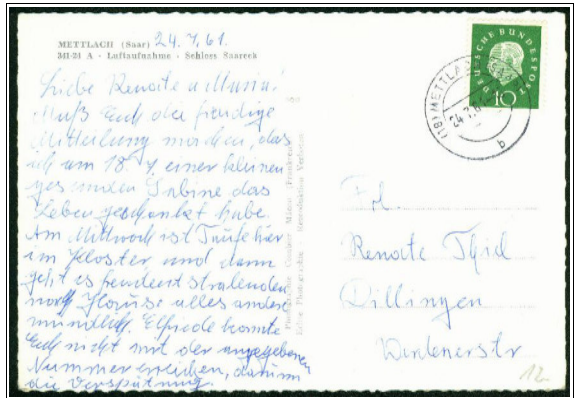 METTLACH (Saar) 24.7.61.
341-24 A · Luftaufnahme · Schloss Saareck
Liebe Renate u Maria!
Muß Euch die freudige
Mitteilung machen, das
ich am 18.7. einer kleinen
gesunden Sabine das
Leben geschenkt habe.
Am Mittwoch ist Taufe hier
im Kloster und dann
geht es freudestralenden
nach Hause alles andere
mündlich. Elfriede konnte
Euch nicht mit der angegebenen
Nummer erreichen, darum
die Verspätung.
Reproduktion Verboten
DEUTSCHE BUNDESPOST
10
(18) METTLACH
24.7.61
b
Frl.
Renate Thiel
Dillingen
12.-